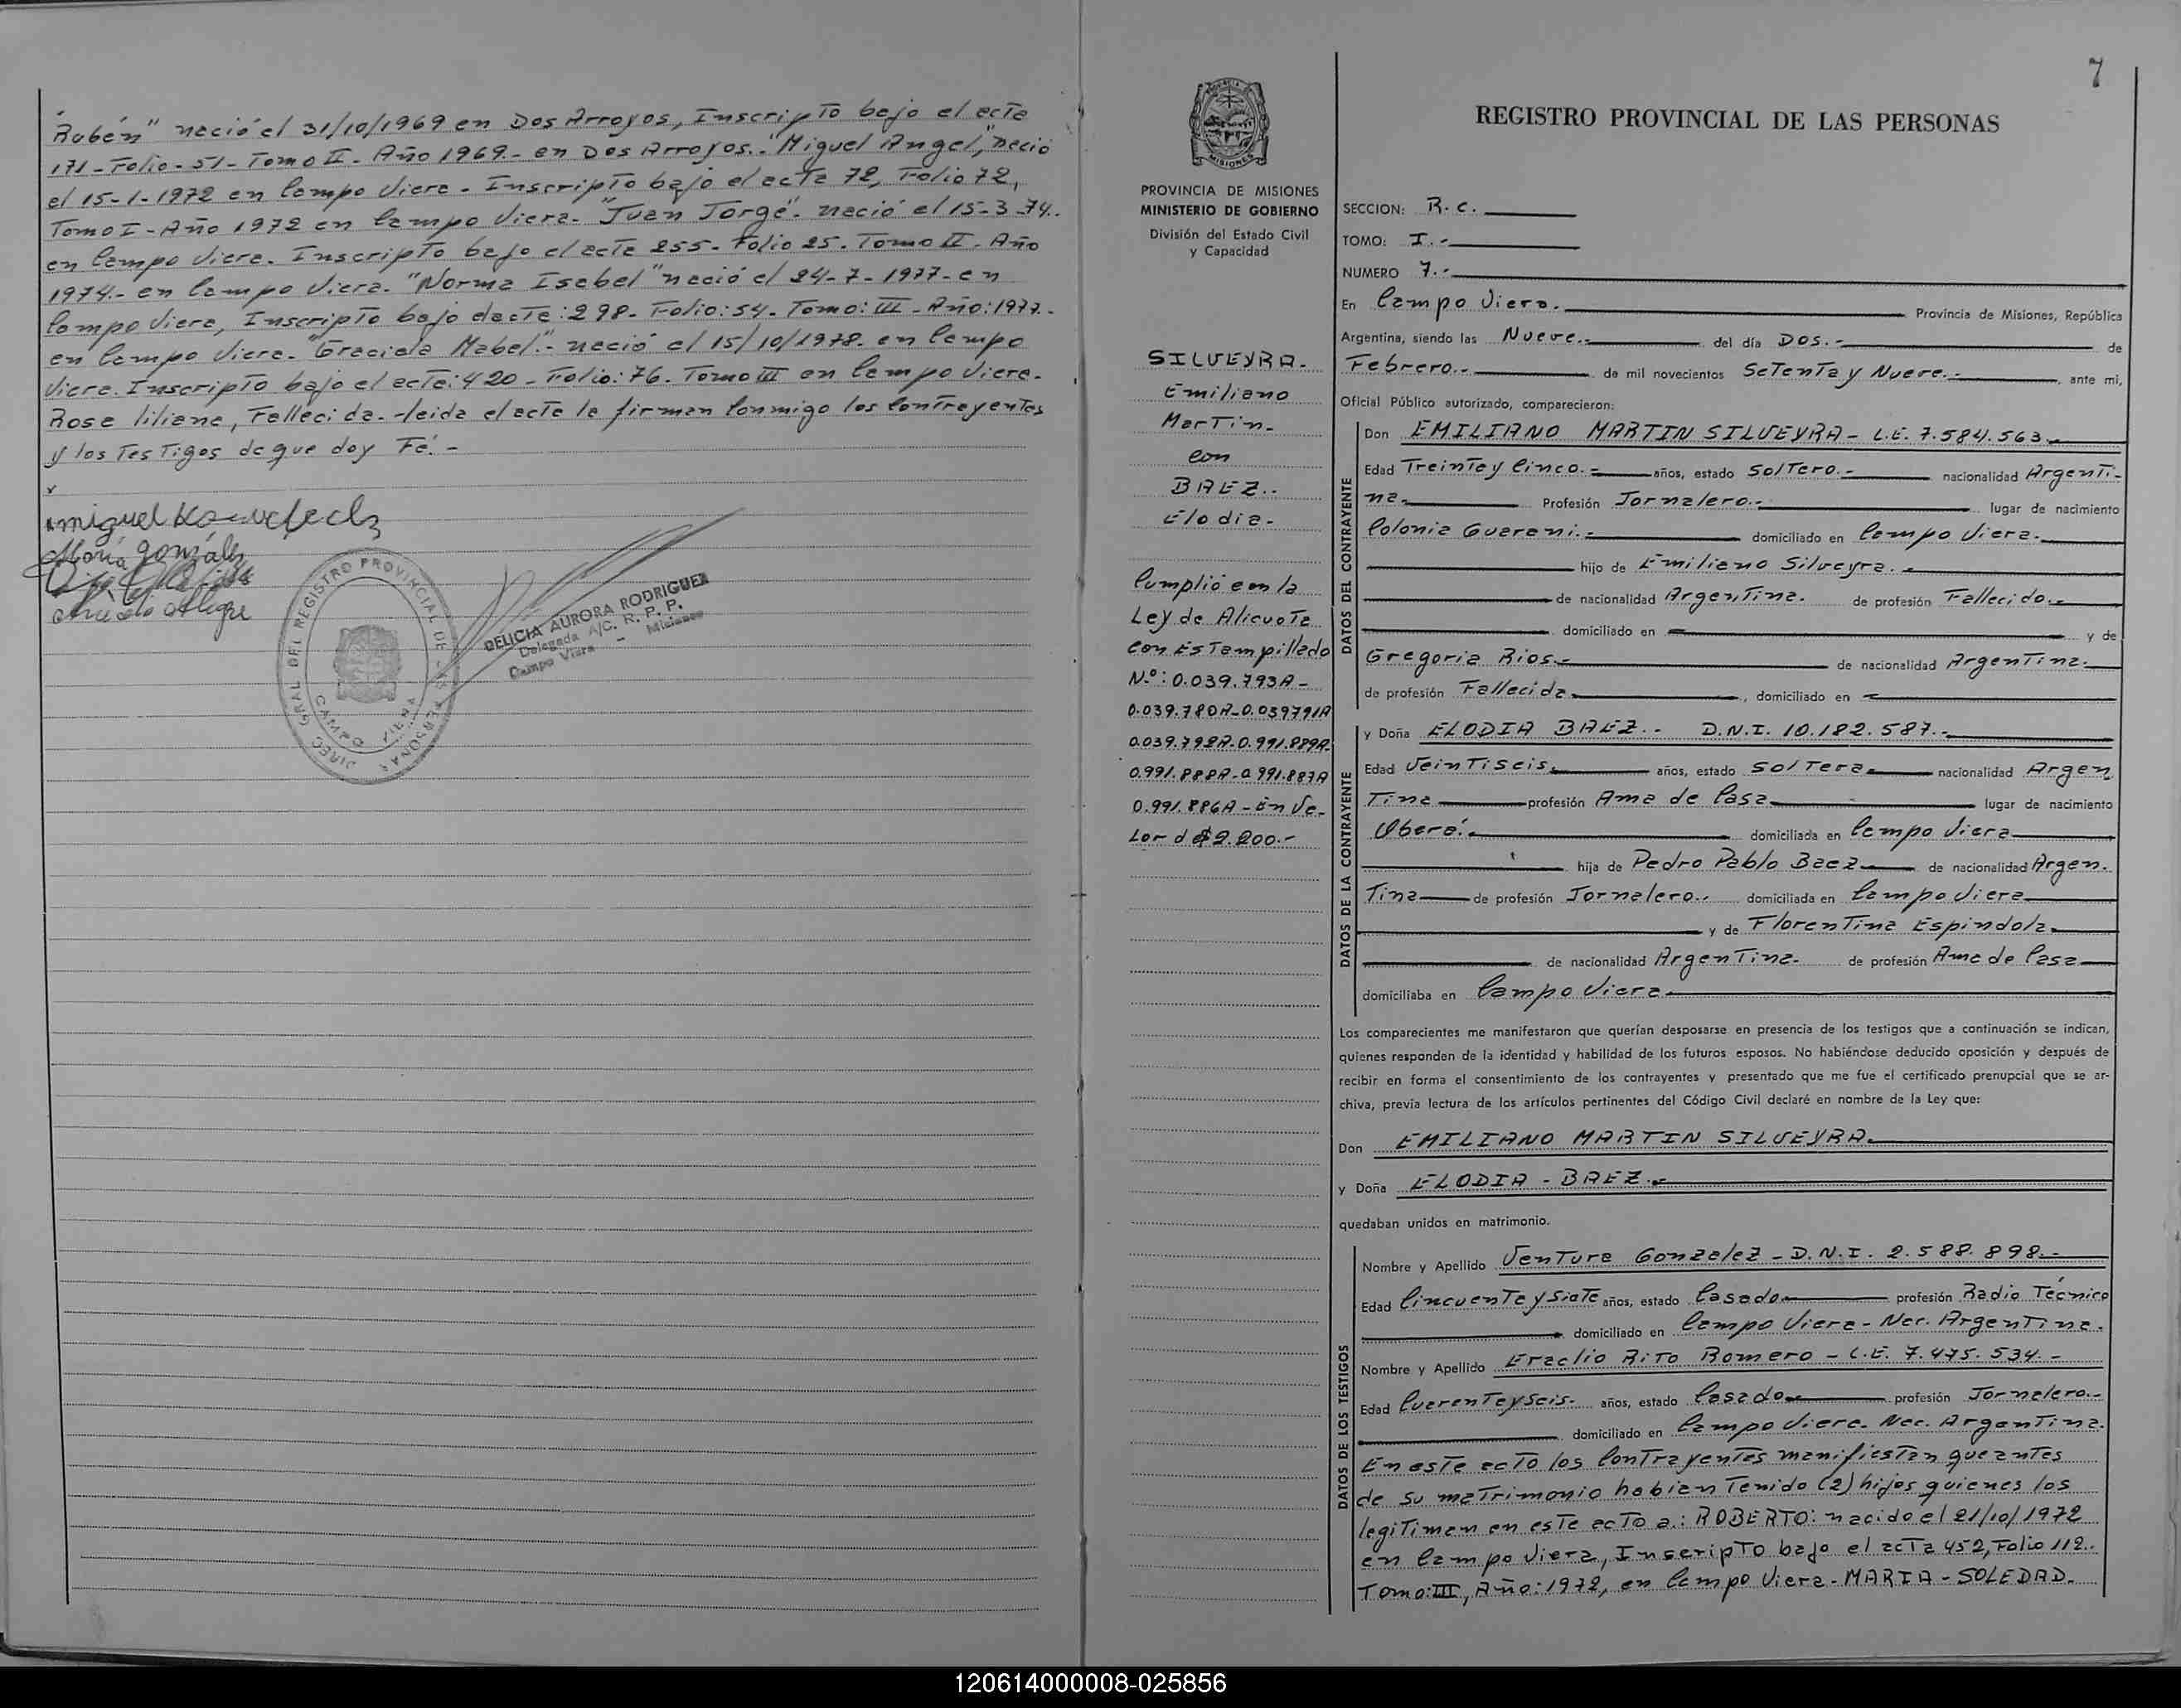 Rubén" nació el 31/10/1969 en Dos Arroyos, Inscripto bajo el acta
171 - Folio - 51 - Tomo II - Año 1969.- en Dos Arroyos.- "Miguel Angel", nació
el 15-1-1972 en Campo Viera - Inscripto bajo el acta 72, Folio 72,
Tomo I - Año 1972 en Campo Viera- "Juan Jorge"- nació el 15-3-74.
en Campo Viera. Inscripto bajo el acta 255- Folio 25. Tomo II. Año
1974.- en Campo Viera- "Norma Isabel" nació el 24-7-1977- en
Campo Viera, Inscripto bajo el acta: 298- Folio: 54- Tomo: III - Año: 1977.-
en Campo Viera- "Graciela Mabel"- nació el 15/10/1978- en Campo
Viera. Inscripto bajo el acta: 420 - Folio: 76. Tomo III en Campo Viera-
Rosa liliana, Fallecida- leida el acta la firman Conmigo los Contrayentes
y los Testigos de que doy Fé.-
miguel
María gonzáles
Alegre
DIREC. GRAL DEL REGISTRO PROVINCIAL DE LAS PERSONAS
CAMPO VIERA
DELICIA AURORA RODRIGUEZ
Delegada A/C. R. P. P.
Campo Viera - Misiones
7
REGISTRO PROVINCIAL DE LAS PERSONAS
PROVINCIA DE MISIONES
MINISTERIO DE GOBIERNO
División del Estado Civil
y Capacidad
SILVEYRA-
Emiliano
Martin-
con
BAEZ.-
Elodia-
Cumplió con la
Ley de Alicuota
con Estampillado
N.º: 0.039.793A-
0.039.780A-0.039791A
0.039.792A-0.991.889A-
0.991.888A-0.991.887A
0.991.886A- En Va-
Lor d $2.200.-
SECCION: R.C.
TOMO: I.-
NUMERO 7.-
En Campo Viera. Provincia de Misiones, República
Argentina, siendo las Nueve.- del día DOS.- de
Febrero.- de mil novecientos Setenta y Nueve.- ante mi,
Oficial Público autorizado, comparecieron:
DATOS DEL CONTRAYENTE
Don EMILIANO MARTIN SILVEYRA- L.E. 7.584.563.-
Edad Treinta y Cinco.- años, estado Soltero.- nacionalidad Argenti-
na- Profesión Jornalero.- lugar de nacimiento
Colonia Guarani.- domiciliado en Campo Viera.
hijo de Emiliano Silveyra.-
de nacionalidad Argentina. de profesión Fallecido.-
domiciliado en y de
Gregoria Rios.- de nacionalidad Argentina.
de profesión Fallecida. , domiciliado en
DATOS DE LA CONTRAYENTE
y Doña ELODIA BAEZ.- D.N.I. 10.182.587.-
Edad Veintiseis. años, estado Soltera. nacionalidad Argen
Tina profesión Ama de Casa lugar de nacimiento
Oberá.- domiciliada en Campo Viera
hija de Pedro Pablo Baez de nacionalidad Argen-
Tina de profesión Jornalero.. domiciliada en Campo Viera
y de Florentina Espindola
de nacionalidad Argentina. de profesión Ama de Casa
domiciliaba en Campo Viera
Los comparecientes me manifestaron que querían desposarse en presencia de los testigos que a continuación se indican,
quienes responden de la identidad y habilidad de los futuros esposos. No habiéndose deducido oposición y después de
recibir en forma el consentimiento de los contrayentes y presentado que me fue el certificado prenupcial que se ar-
chiva, previa lectura de los artículos pertinentes del Código Civil declaré en nombre de la Ley que:
Don EMILIANO MARTIN SILVEYRA
y Doña ELODIA - BAEZ.-
quedaban unidos en matrimonio.
DATOS DE LOS TESTIGOS
Nombre y Apellido Ventura Gonzalez - D.N.I. 2.588.898.-
Edad Cincuenta y Siate años, estado Casado profesión Radio Técnico
domiciliado en Campo Viera- Nac. Argentina.
Nombre y Apellido Eraclio Rito Romero - L.E. 7.475.534.-
Edad Cuarenta y Seis. años, estado Casado profesión Jornalero.-
domiciliado en Campo Viera- Nac. Argentina.
En este acto los Contrayentes manifiestan que antes
de su matrimonio habian Tenido (2) hijos quienes los
legitiman en este acto a: ROBERTO: nacido el 21/10/1972
en Campo Viera, Inscripto bajo el acta 452, Folio 112.
Tomo: III, Año: 1972, en Campo Viera- MARIA - SOLEDAD-
120614000008-025856